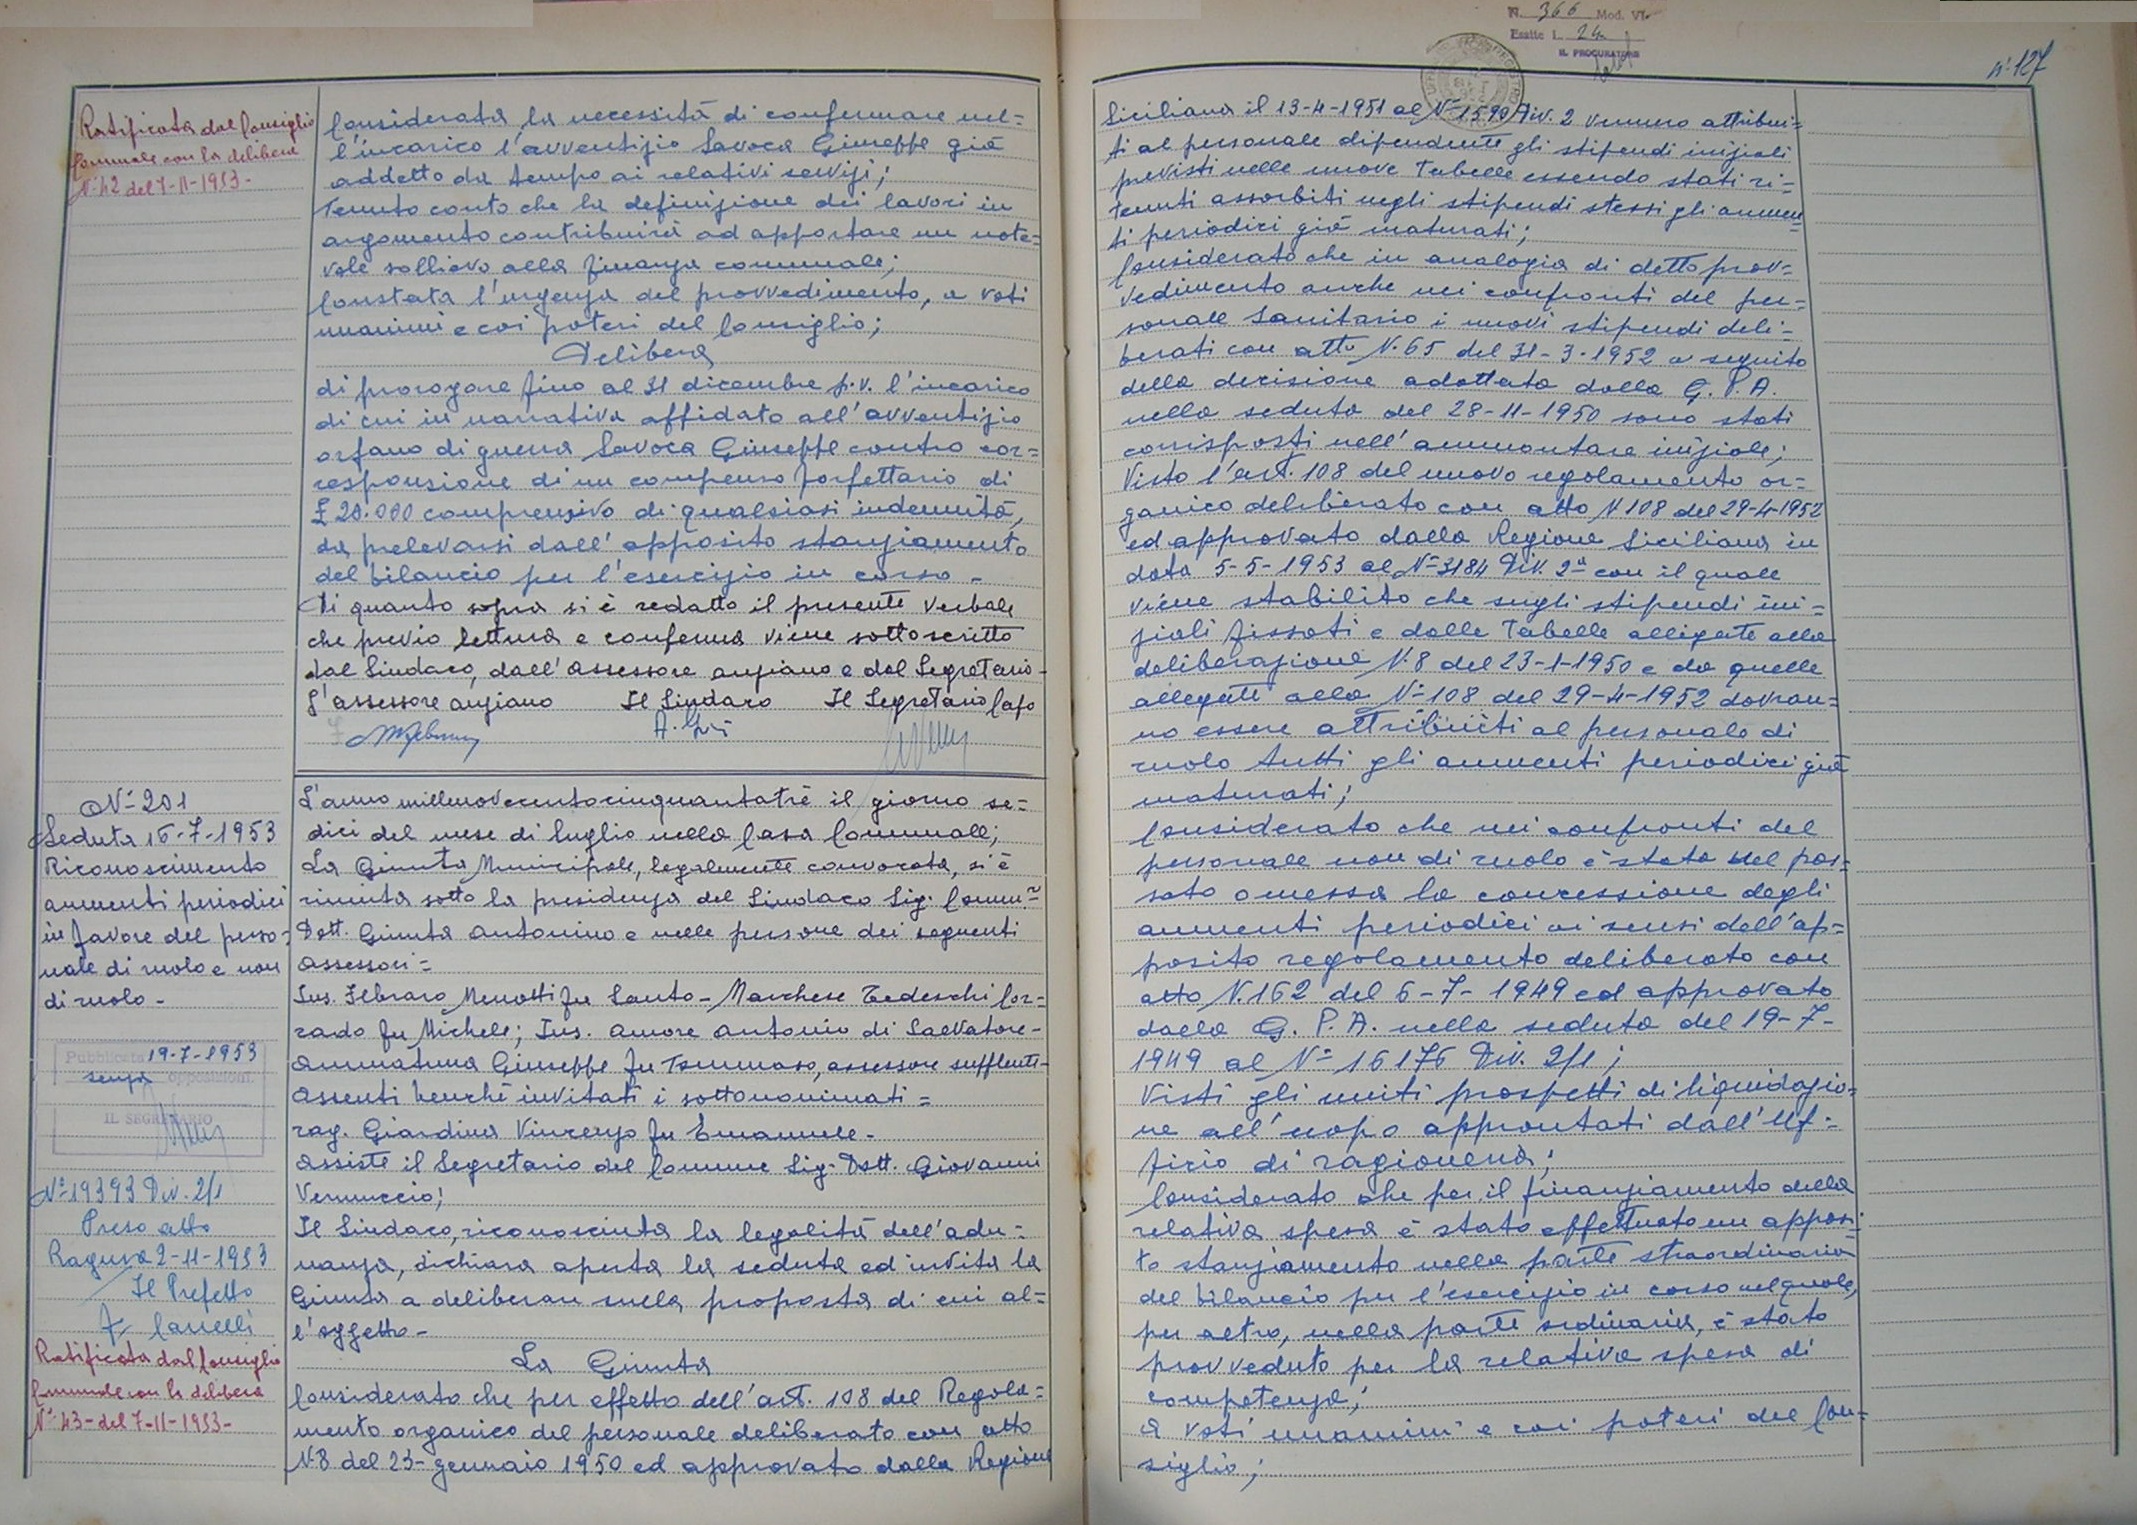 Ratificata dal Consiglio
Comunale con la delibera
N. 42 del 7-11-1953-
Considerata la necessità di confermare nel=
l'incarico l'avventizio Savoca Giuseppe già
addetto da tempo ai relativi servizi;
Tenuto conto che la definizione dei lavori in
argomento contribuirà ad apportare un note=
vole sollievo alla finanza comunale;
Constata l'urgenza del provvedimento, a voti
unanimi e coi poteri del Consiglio;
Delibera
di prorogare fino al 31 dicembre p.v. l'incarico
di cui in narrativa affidato all'avventizio
orfano di guerra Savoca Giuseppe contro cor=
responsione di un compenso forfettario di
£ 20.000 comprensivo di qualsiasi indennità,
da prelevarsi dall'apposito stanziamento
del bilancio per l'esercizio in corso -
Di quanto sopra si è redatto il presente verbale
che previo lettura e conferma viene sottoscritto
dal Sindaco, dall'assessore anziano e dal Segretario-
L'assessore anziano Il Sindaco Il Segretario Capo
N° 201
Seduta 16-7-1953
Riconoscimento
aumenti periodici
in favore del perso-
nale di ruolo e non
di ruolo -
Pubblicata 19-7-1953
senza opposizioni.
IL SEGRETARIO
N° 19393 Div. 2/1
Preso atto
Ragusa 2-11-1953
Il Prefetto
Ratificata dal Consiglio
Comunale con la delibera
N° 43 - del 7-11-1953-
L'anno millenovecentocinquantatrè il giorno se=
dici del mese di luglio nella Casa Comunale;
La Giunta Municipale, legalmente convocata, si è
riunita sotto la presidenza del Sindaco Sig. Comm.
Dott. Giunta Antonino e nelle persone dei seguenti
Assessori =
Ins. Febraro Menotti fu Santo - Marchese Tedeschi Cor=
rado fu Michele; Ins. Amore Antonio di Salvatore -
Ammatuna Giuseppe fu Tommaso, assessore supplente-
Assenti benchè invitati i sottonominati =
rag. Giardina Vincenzo fu Emanuele -
Assiste il Segretario del Comune Sig. Dott. Giovanni
Vernuccio;
Il Sindaco, riconosciuta la legalità dell'adu=
nanza, dichiara aperta la seduta ed invita la
Giunta a deliberare sulla proposta di cui al=
l'oggetto -
La Giunta
Considerato che per effetto dell'art. 108 del Regola=
mento organico del personale deliberato con atto
N. 8 del 23-gennaio 1950 ed approvato dalla Regione
N. 366 Mod. VI
Esatte L. 24
IL PROCURATORE
n° 127
Siciliana il 13-4-1951 al N° 1590 Div. 2 vennero attribui=
ti al personale dipendente gli stipendi iniziali
previsti nelle nuove Tabelle essendo stati ri-
tenuti assorbiti negli stipendi stessi gli aumen=
ti periodici già maturati;
Considerato che in analogia di detto prov=
vedimento anche nei confronti del per=
sonale Sanitario i nuovi stipendi deli=
berati con atto N. 65 del 31-3-1952 a seguito
della decisione adottata dalla G. P. A.
nella seduta del 28-11-1950 sono stati
corrisposti nell'ammontare iniziale;
Visto l'art. 108 del nuovo regolamento or=
ganico deliberato con atto N 108 del 29-4-1952
ed approvato dalla Regione Siciliana in
data 5-5-1953 al N° 3184 Div. 2ª con il quale
viene stabilito che sugli stipendi ini=
ziali fissati e dalle Tabelle allegate alla
deliberazione N. 8 del 23-1-1950 e da quelle
allegate alla N° 108 del 29-4-1952 dovran=
no essere attribuiti al personale di
ruolo tutti gli aumenti periodici già
maturati;
Considerato che nei confronti del
personale non di ruolo è stata nel pas=
sato omessa la concessione degli
aumenti periodici ai sensi dell'ap=
posito regolamento deliberato con
atto N. 162 del 6-7-1949 ed approvato
dalla G. P. A. nella seduta del 19-7-
1949 al N° 16176 Div. 2/1;
Visti gli uniti prospetti di liquidazio=
ne all'uopo approntati dall'Uf=
ficio di ragioneria;
Considerato che per il finanziamento della
relativa spesa è stato effettuato un apposi=
to stanziamento nella parte straordinaria
del bilancio per l'esercizio in corso nel quale,
per altro, nella parte ordinaria, è stato
provveduto per la relativa spesa di
competenza;
A voti unanimi e coi poteri del Con=
siglio;